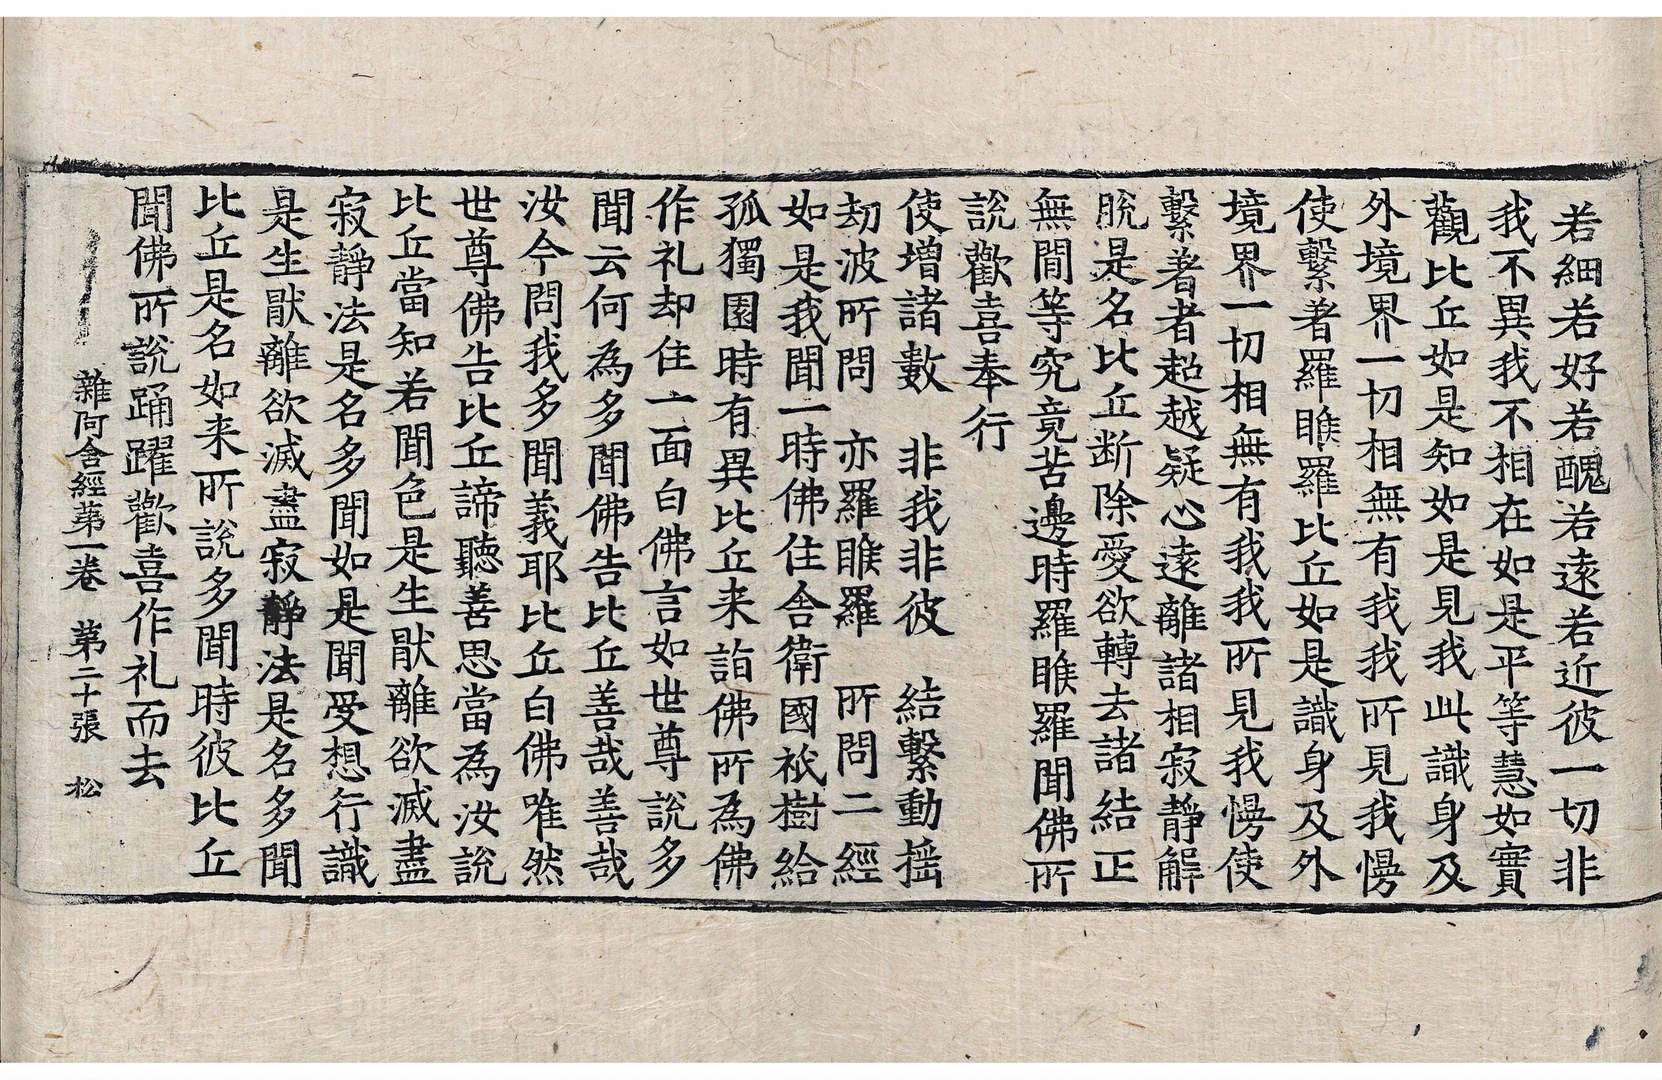 若細若好若醜若遠若近彼一切非
我不異我不相在如是平等慧如實
觀比丘如是知如是見我此識身及
外境界一切相無有我我所見我慢
使繫著羅睺羅比丘如是識身及外
境界一切相無有我我所見我慢使
繫著者超越疑心遠離諸相寂靜解
脫是名比丘断除愛欲轉去諸結正
無閒等究竟苦邊時羅睺羅聞佛所
說歡喜奉行
使增諸數　非我非彼　結繫動搖
劫波所問　亦羅睺羅　所問二經
如是我聞一時佛住舍衛國祇樹給
孤獨園時有異比丘来詣佛所為佛
作礼却住一面白佛言如世尊說多
聞云何為多聞佛告比丘善哉善哉
汝今問我多聞義耶比丘白佛唯然
世尊佛告比丘諦聽善思當為汝說
比丘當知若聞色是生猒離欲滅盡
寂靜法是名多聞如是聞受想行識
是生猒離欲滅盡寂靜法是名多聞
比丘是名如来所說多聞時彼比丘
聞佛所說踊躍歡喜作礼而去
雜阿含經苐一卷　苐二十張　松